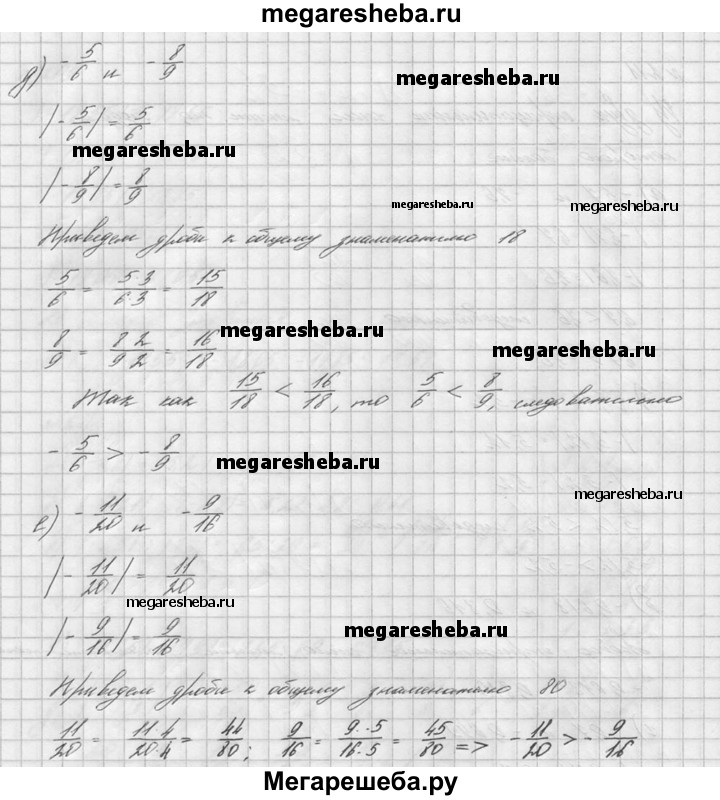 megaresheba.ru
д) -5/6 и -8/9
megaresheba.ru
|-5/6| = 5/6
megaresheba.ru
|-8/9| = 8/9
megaresheba.ru
megaresheba.ru
Приведем дроби к общему знаменателю 18
5/6 = 5 3/6 3 = 15/18
megaresheba.ru
8/9 = 8 2/9 2 = 16/18
megaresheba.ru
Так как 15/18 < 16/18, то 5/6 < 8/9, следовательно
-5/6 > -8/9
megaresheba.ru
megaresheba.ru
е) -11/20 и -9/16
|-11/20| = 11/20
megaresheba.ru
|-9/16| = 9/16
megaresheba.ru
Приведем дроби к общему знаменателю 80
11/20 = 11·4/20·4 = 44/80; 9/16 = 9·5/16·5 = 45/80 => -11/20 > -9/16
Мегарешеба.ру